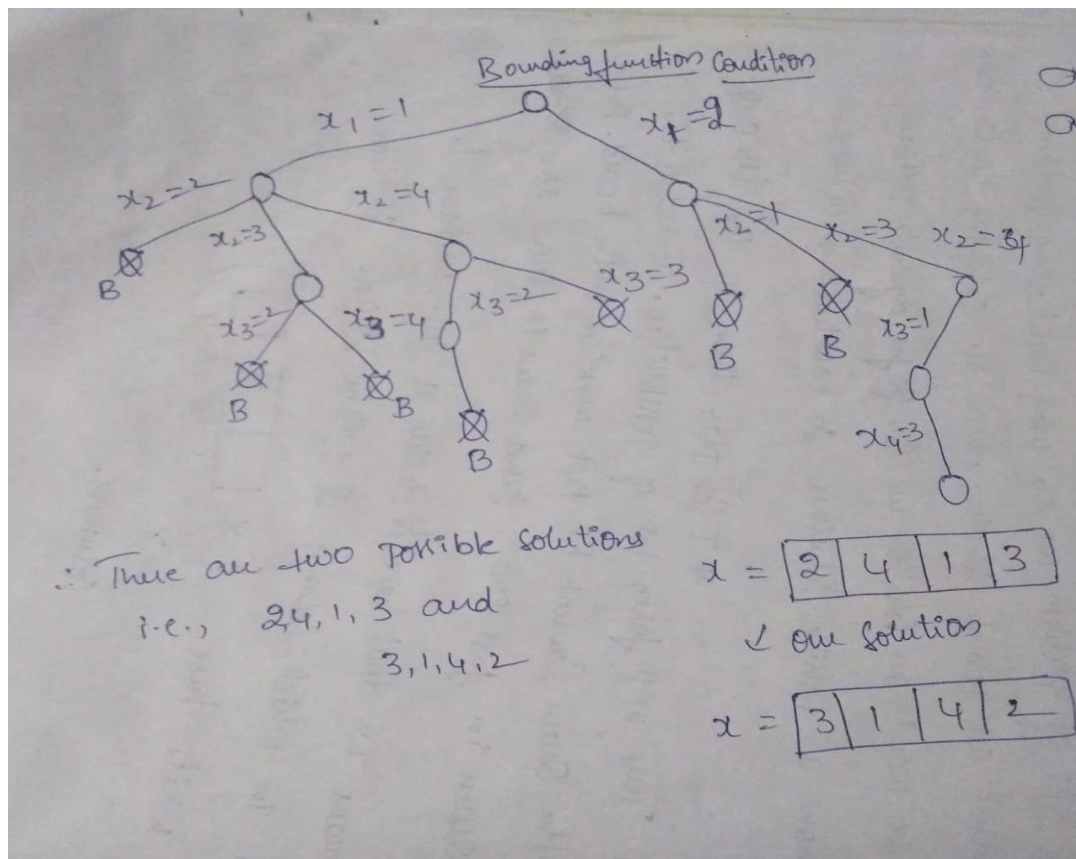 Bounding function Condition
x₁ = 1
x₁ = 2
x₂ = 2
x₂ = 4
x₂=3
x₂=1
x₂=3
x₂=34
B
x₃=2
x₃=4
x₃=2
x₃=3
x₃=1
B
B
B
B
B
x₄=3
∴ There are two possible solutions
i.e., 2,4, 1, 3 and
3,1,4,2
x = 2 4 1 3
↙ one solution
x = 3 1 4 2